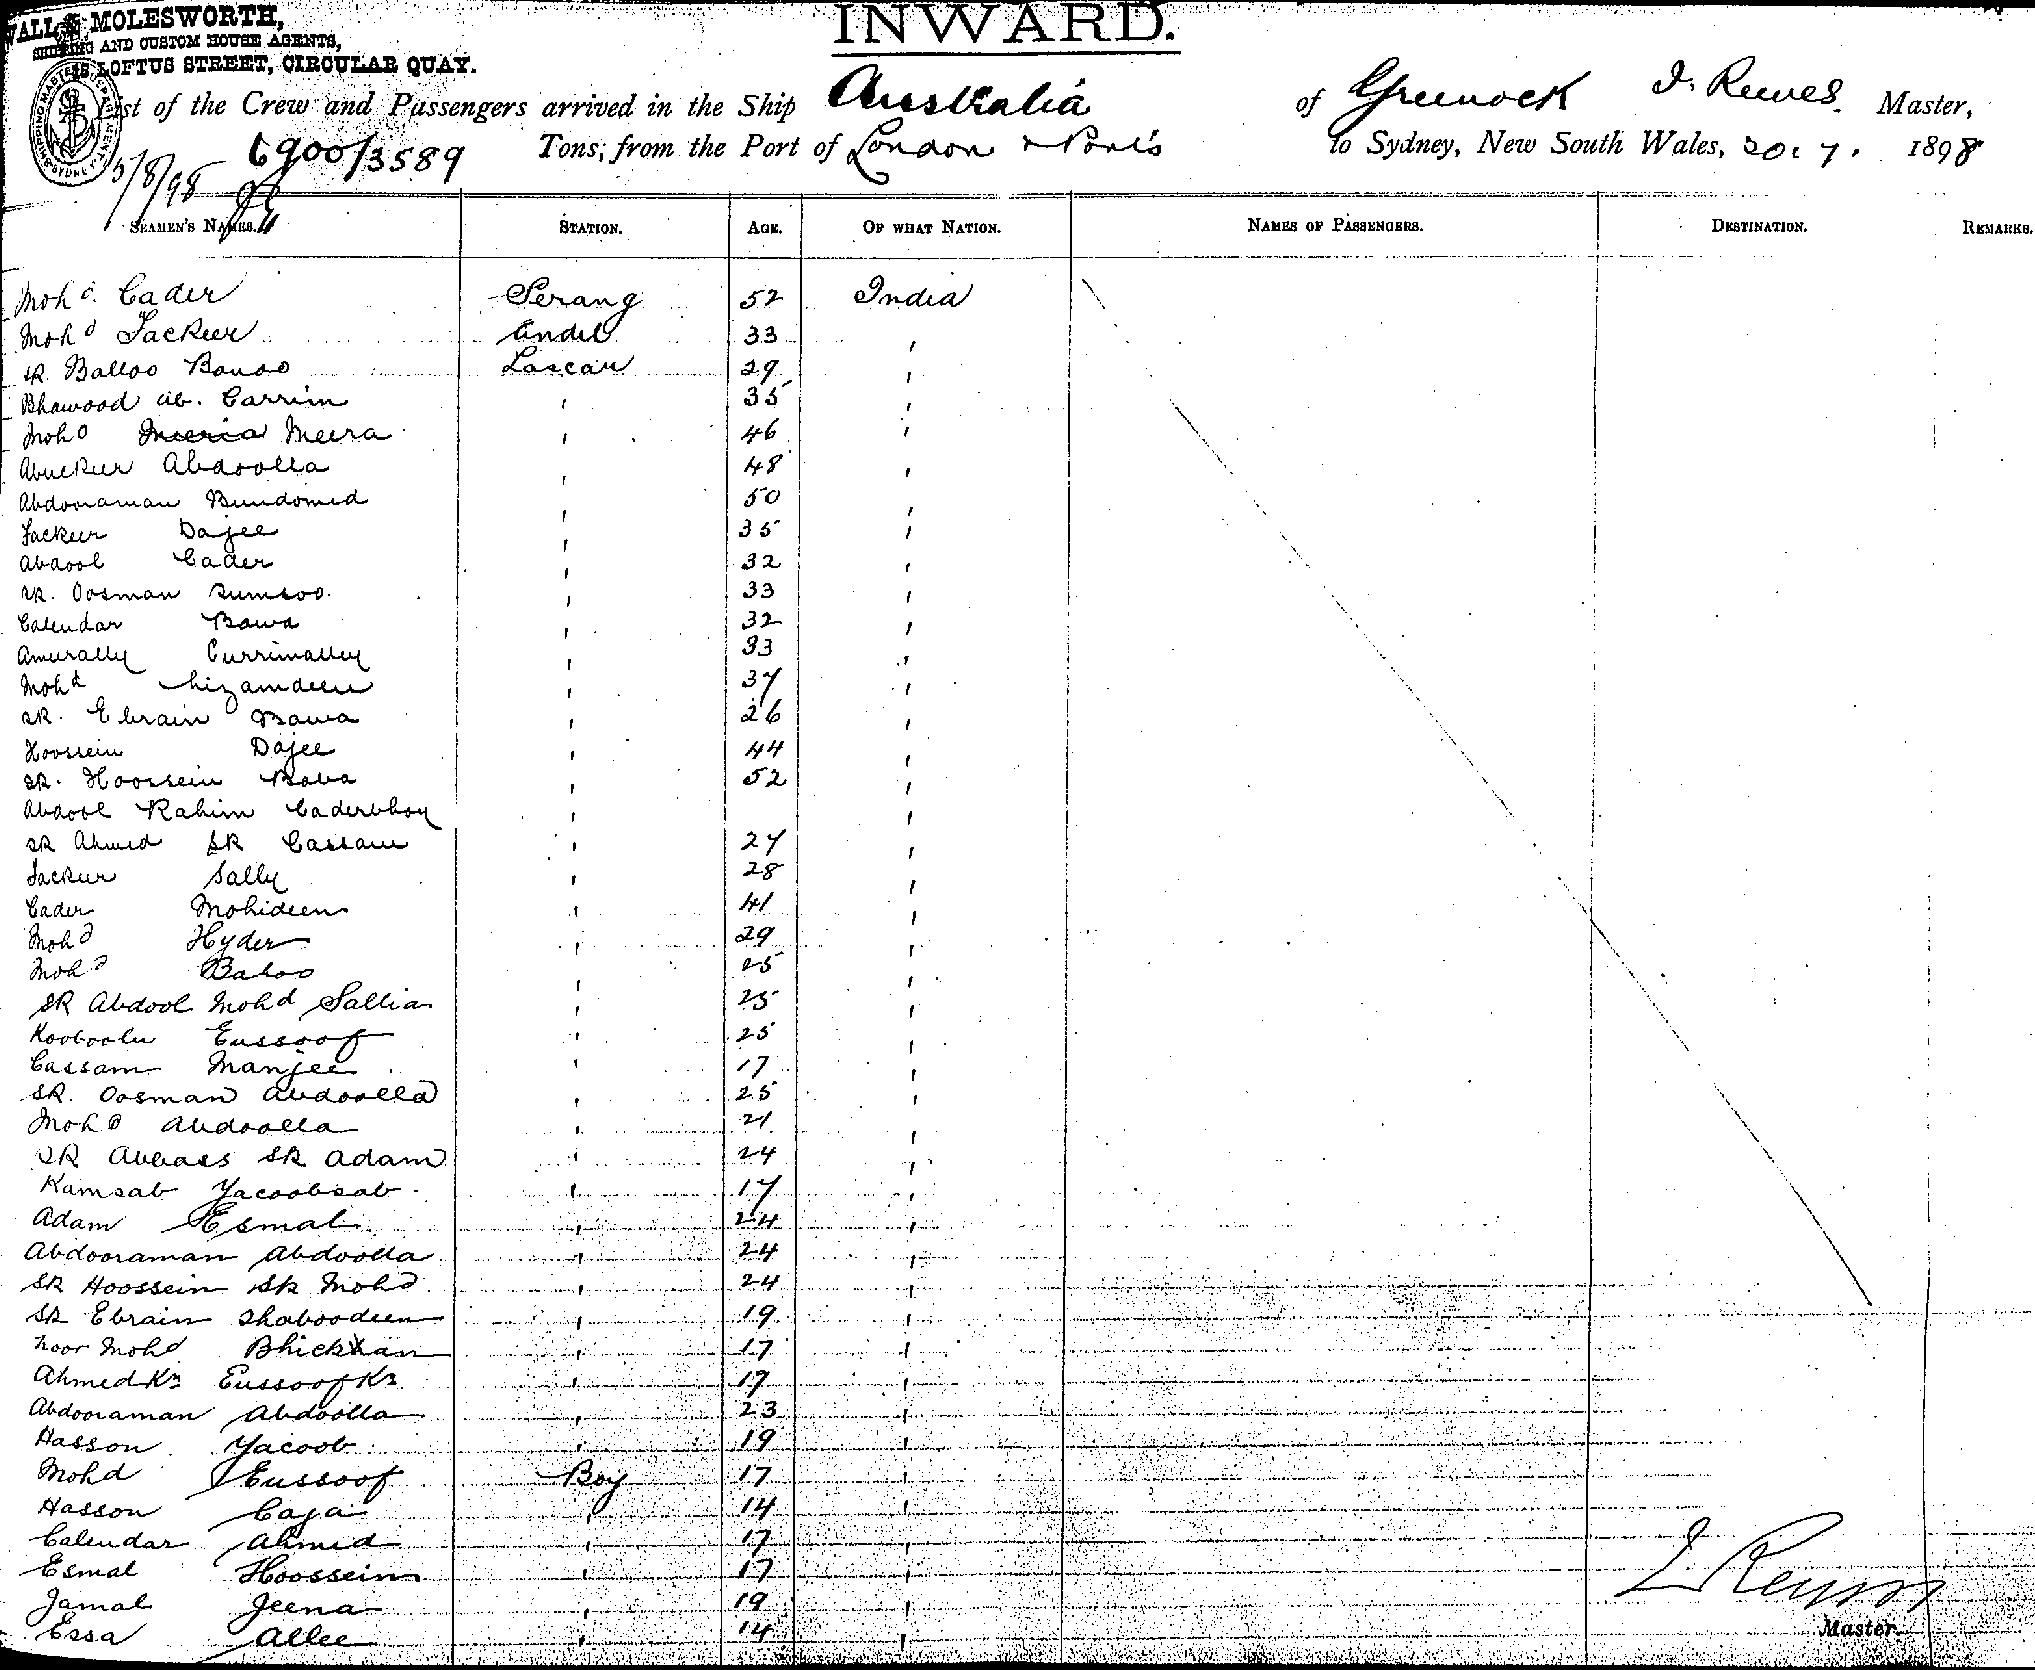 WALL & MOLESWORTH,
SHIPPING AND CUSTOM HOUSE AGENTS,
LOFTUS STREET, CIRCULAR QUAY.
INWARD.
List of the Crew and Passengers arrived in the Ship Australia of Greenock I. Reeves. Master,
6900/3589 Tons, from the Port of London & Ports to Sydney, New South Wales, 20.7. 1898
3/8/98
SEAMEN'S NAMES. STATION. AGE. OF WHAT NATION. NAMES OF PASSENGERS. DESTINATION. REMARKS.
Mohd. Cader Serang 52 India
Mohd Fackeer 33 "
SK. Balloo Lascar 29 "
Bhawood Ab. Carrim " 35 "
Mohd Meera " 46 "
Abucker Abdoolla " 48 "
Abdooraman Bundomed " 50 "
Fackeer Dajee " 35 "
Abdool Cader " 32 "
SK. Oosman Sumsoo. " 33 "
Calendar Bawa " 32 "
Amurally Currimalley " 33 "
Mohd Nizamdeen " 37 "
SK. Ebraim Bawa " 26 "
Hoossein Dajee " 44 "
SK. Hoossein Bava " 52 "
Abdool Rahim Caderbhoy " "
SK Ahmed SK Cassam " 27 "
Fackeer Sally " 28 "
Cader Mohideen " 41 "
Mohd Hyder " 29 "
Mohd Baloo " 25 "
SK Abdool Mohd Sallia " 25 "
Eussoof " 25 "
Cassam Manjee " 17 "
SK. Oosman Abdoolla " 25 "
Mohd Abdoolla " 21 "
SK Abbass SK Adam " 24 "
Kamsab Yacoobsab " 17 "
Adam Esmal " 24 "
Abdooraman Abdoolla " 24 "
SK Hoossein SK Mohd " 24 "
SK Ebraim Shaboodeen " 19 "
Noor Mohd Bhickhan " 17 "
Ahmed Kn Eussoof Kn " 19 "
Abdooraman Abdoolla " 23 "
Hasson Yacoob " 19 "
Mohd Eussoof Boy 17 "
Hasson Caja " 14 "
Calendar Ahmed " 17 "
Esmal Hoossein " 17 "
Jamal Jeena " 19 "
Essa Allee " 14 "
I Reeves
Master.